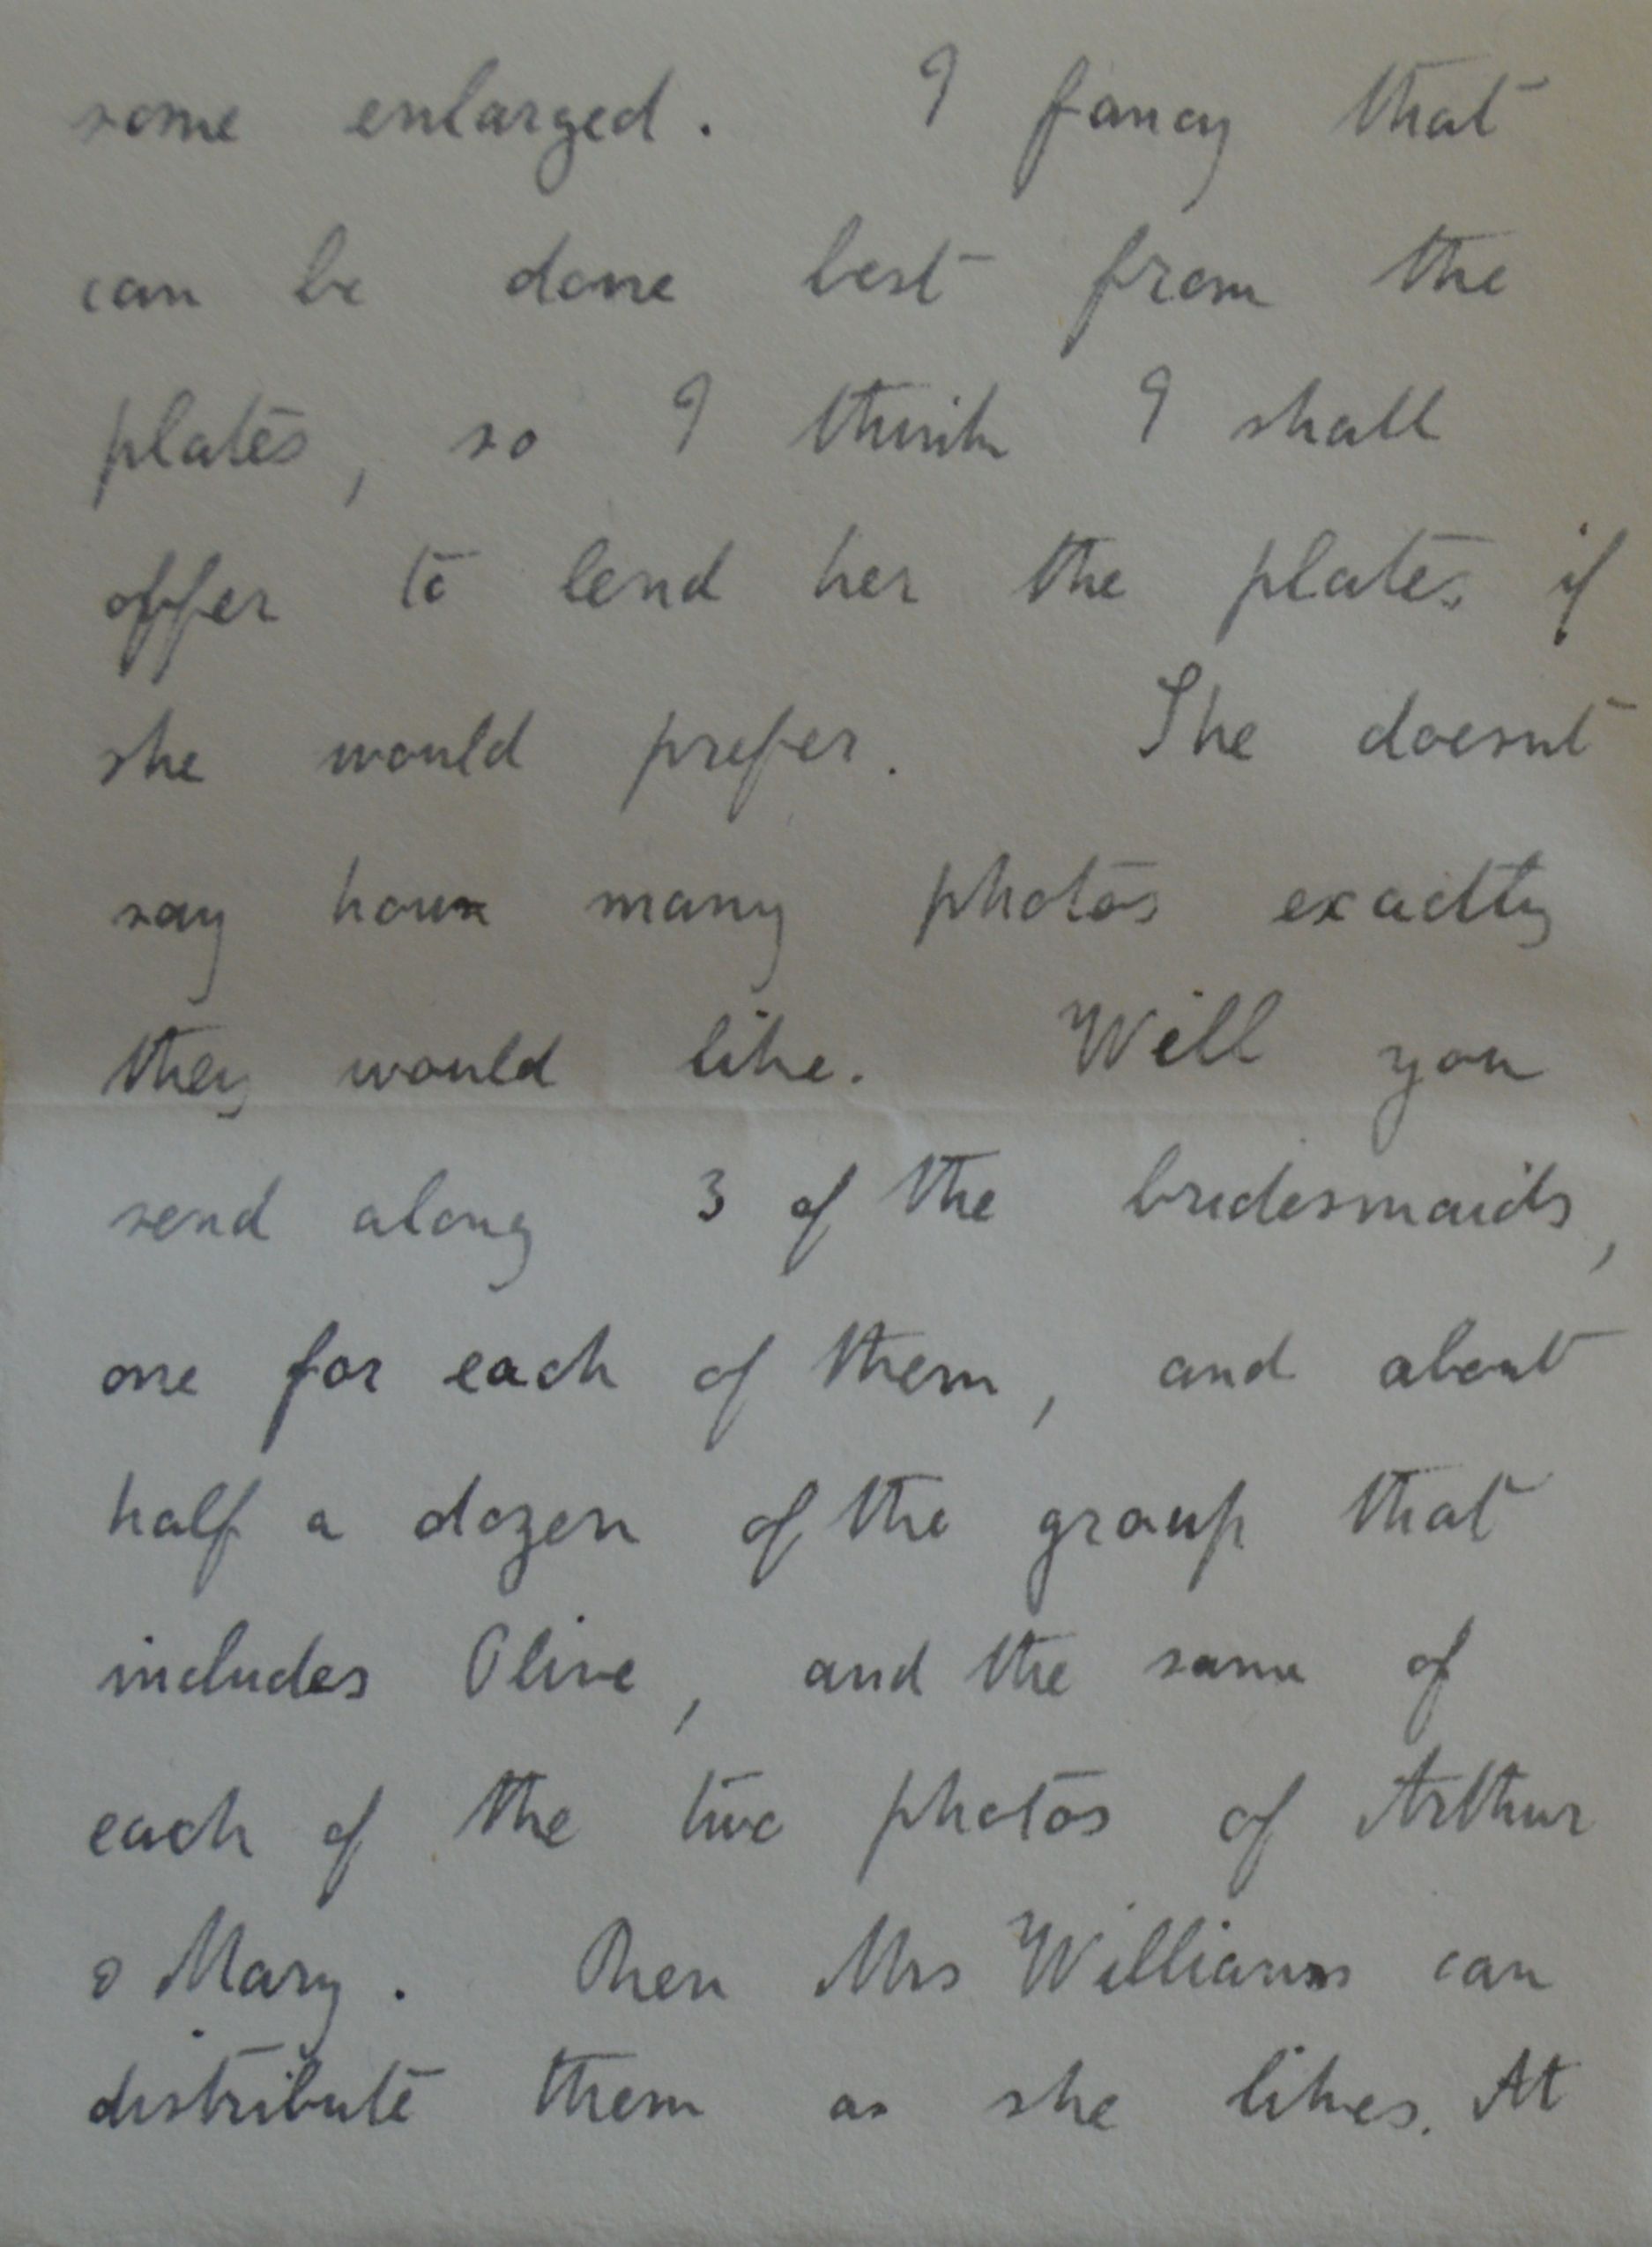 some enlarged. I fancy that
can be done best from the
plates, so I think I shall
offer to lend her the plates if
she would prefer. She doesnt
say how many photos exactly
they would like. Will you
send along 3 of the bridesmaids,
one for each of them, and about
half a dozen of the group that
includes Olive, and the same of
each of the two photos of Arthur
& Mary. Then Mrs Williams can
distribute them as she likes. At